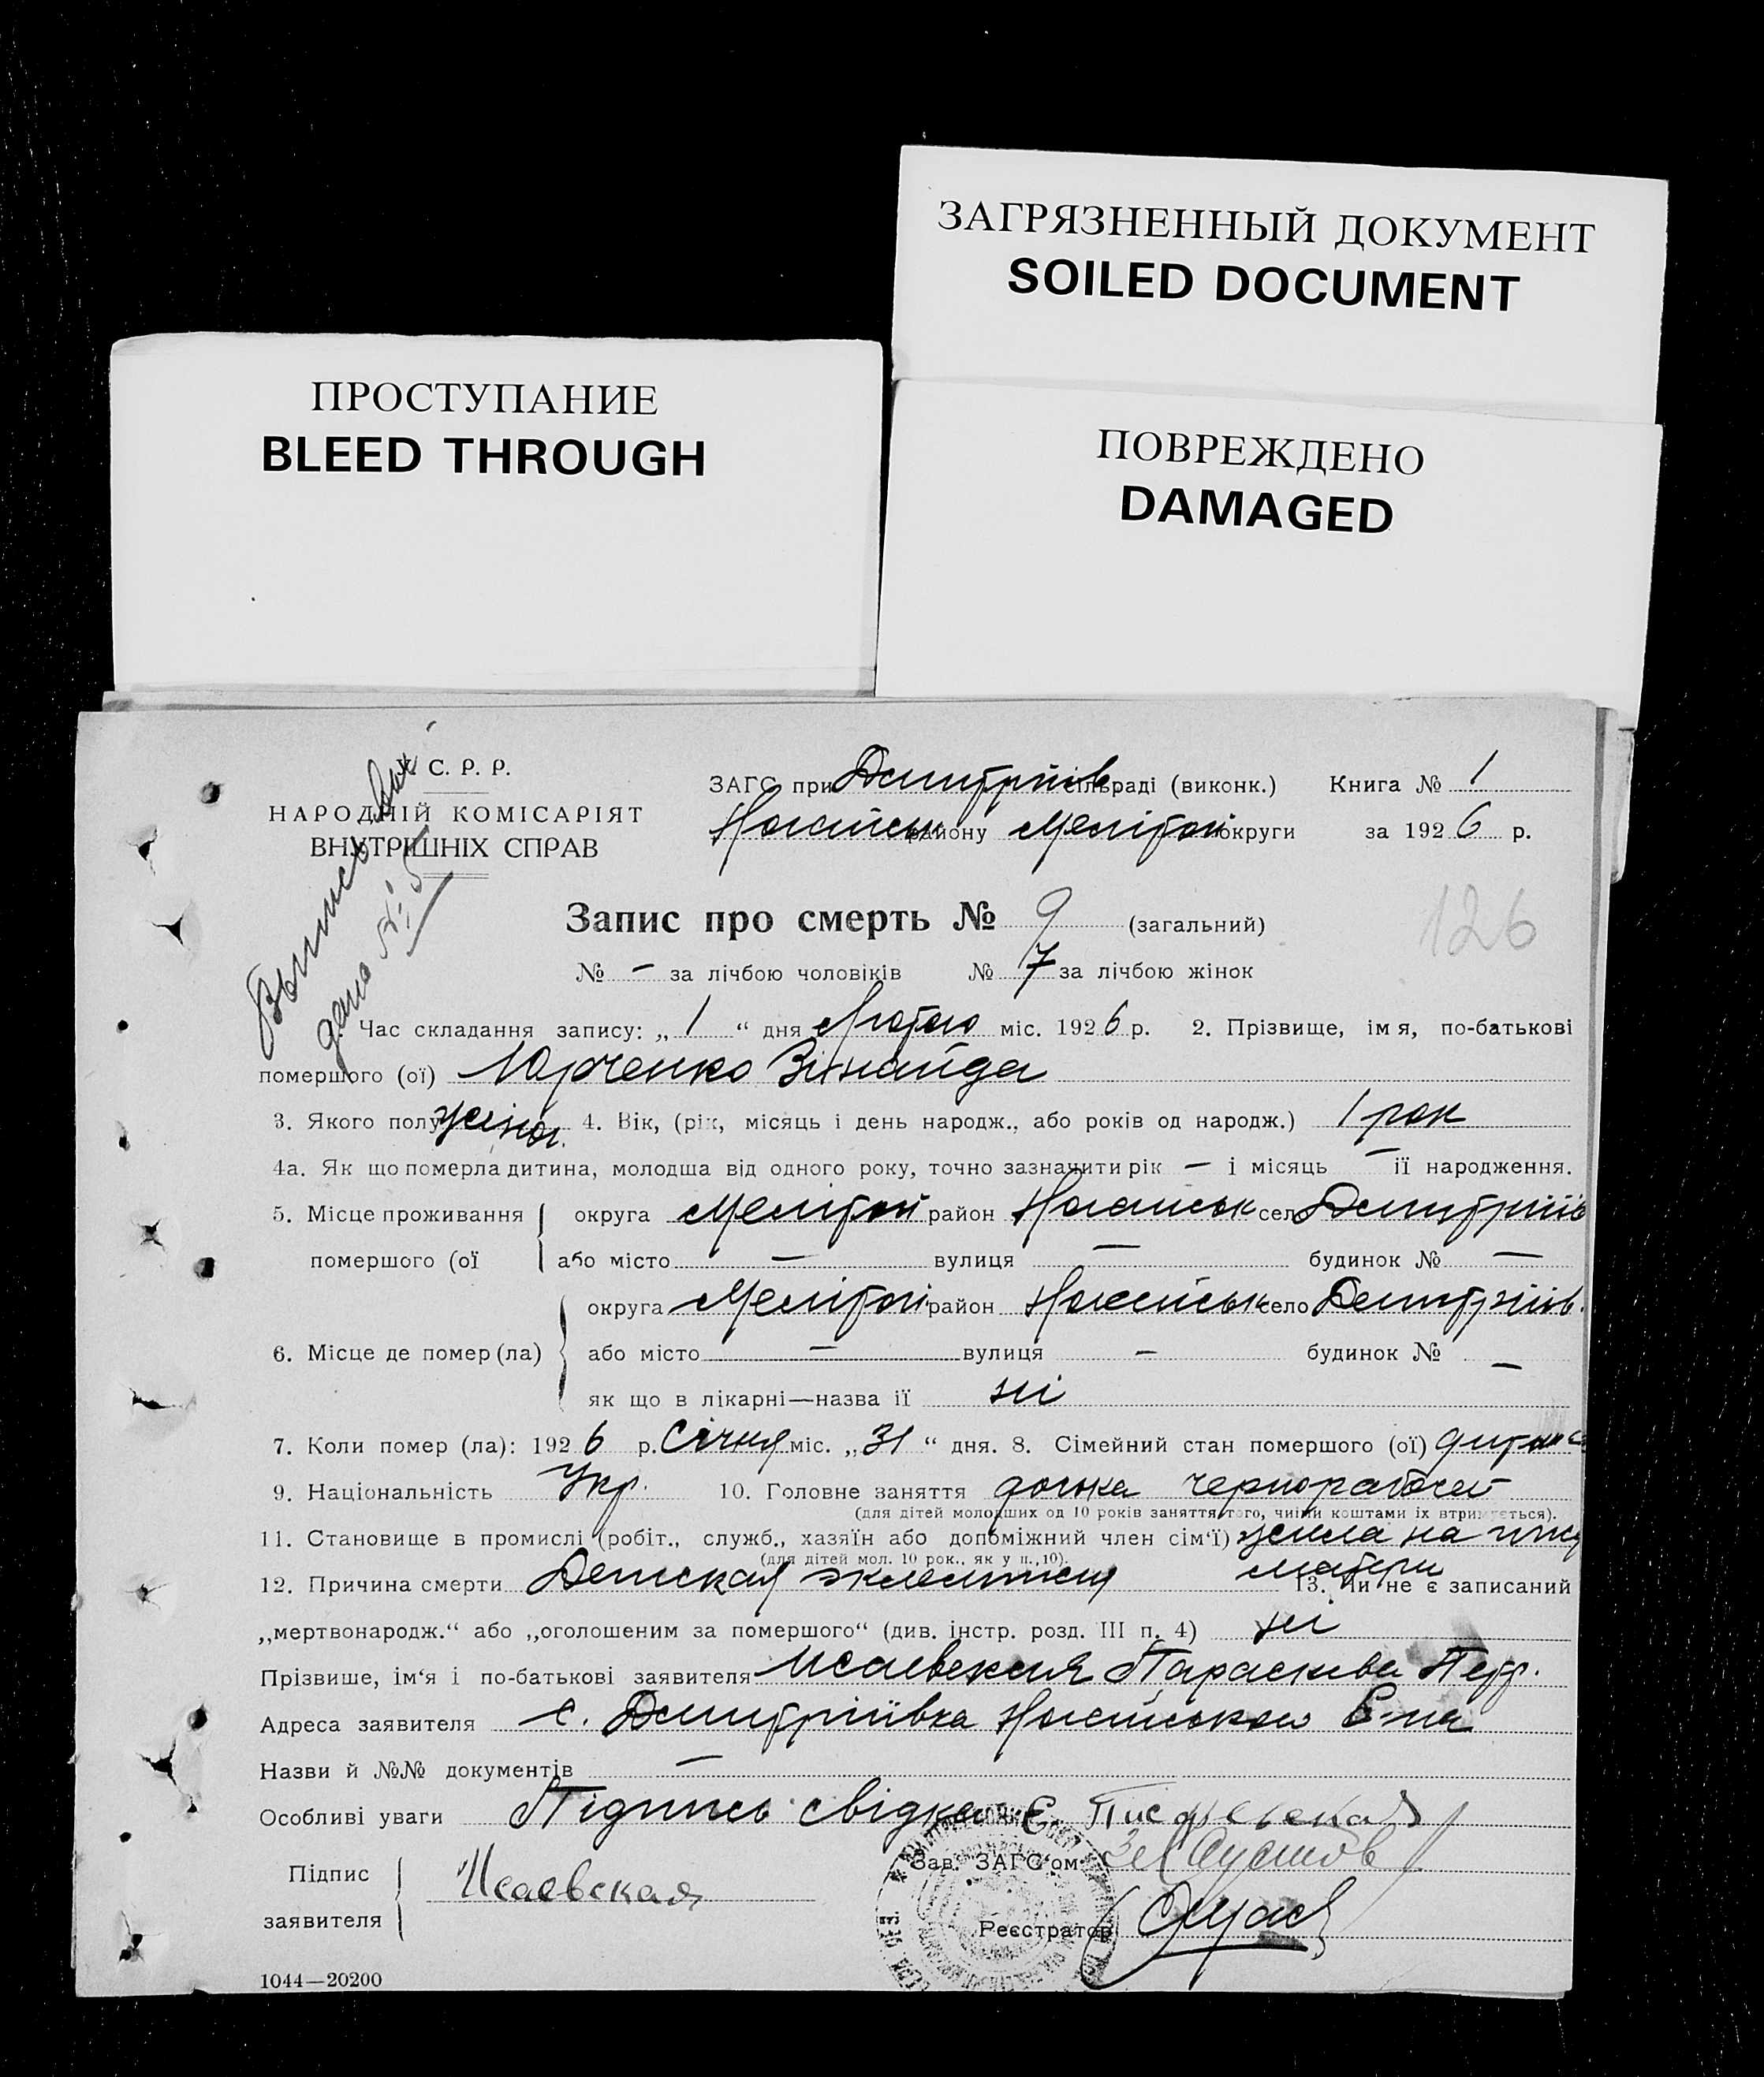 ЗАГРЯЗНЕННЫЙ ДОКУМЕНТ
SOILED DOCUMENT
ПРОСТУПАНИЕ
BLEED THROUGH
ПОВРЕЖДЕНО
DAMAGED
У. С. Р. Р.
НАРОДНІЙ КОМІСАРІЯТ
ВНУТРІШНІХ СПРАВ
Выпись
дана № 5
ЗАГС при Дмитріїв сільраді (виконк.) Книга № 1
Ногайськ району Мелітоп округи за 1926 р.
Запис про смерть № 9 (загальний)
126
№ — за лічбою чоловіків № 7 за лічбою жінок
Час складання запису: „1“ дня Лютого міс. 1926 р. 2. Прізвище, імя, по-батькові
помершого (ої) Юрченко Зінаїда
3. Якого полу жіноч. 4. Вік, (рік, місяць і день народж., або років од народж.) 1 рок
4а. Як що померла дитина, молодша від одного року, точно зазначити рік — і місяць — її народження.
5. Місце проживання округа Мелітоп район Ногайськ село Дмитріїв
помершого (ої або місто — вулиця — будинок № —
округа Мелітоп район Ногайськ село Дмитріїв.
6. Місце де помер (ла) або місто — вулиця — будинок № —
як що в лікарні—назва її ні
7. Коли помер (ла): 1926 р. Січня міс. „31“ дня. 8. Сімейний стан помершого (ої) дитина
9. Національність Укр. 10. Головне заняття дочка чернорабочей
(для дітей молодших од 10 років заняття того, чиїми коштами їх втримується).
11. Становище в промислі (робіт., служб., хазяїн або допоміжний член сім'ї) жила на
(для дітей мол. 10 рок., як у п., 10).
матери
12. Причина смерти Детская эклампсия 13. Чи не є записаний
„мертвонародж.“ або „оголошеним за помершого“ (див. інстр. розд. III п. 4) ні
Прізвише, ім'я і по-батькові заявителя Исаевская Параскива Петр.
Адреса заявителя с. Дмитріївка Ногайського Р-на
Назви й №№ документів —
Особливі уваги Підпись свідка Є.
Підпис
заявителя Исаевская
Зав. ЗАГС'ом
Реєстратор
1044—20200